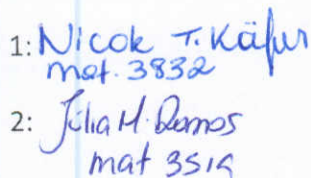 1: Nicole T. Käfer
mat. 3832
2: Júlia M. Ramos
mat 3519